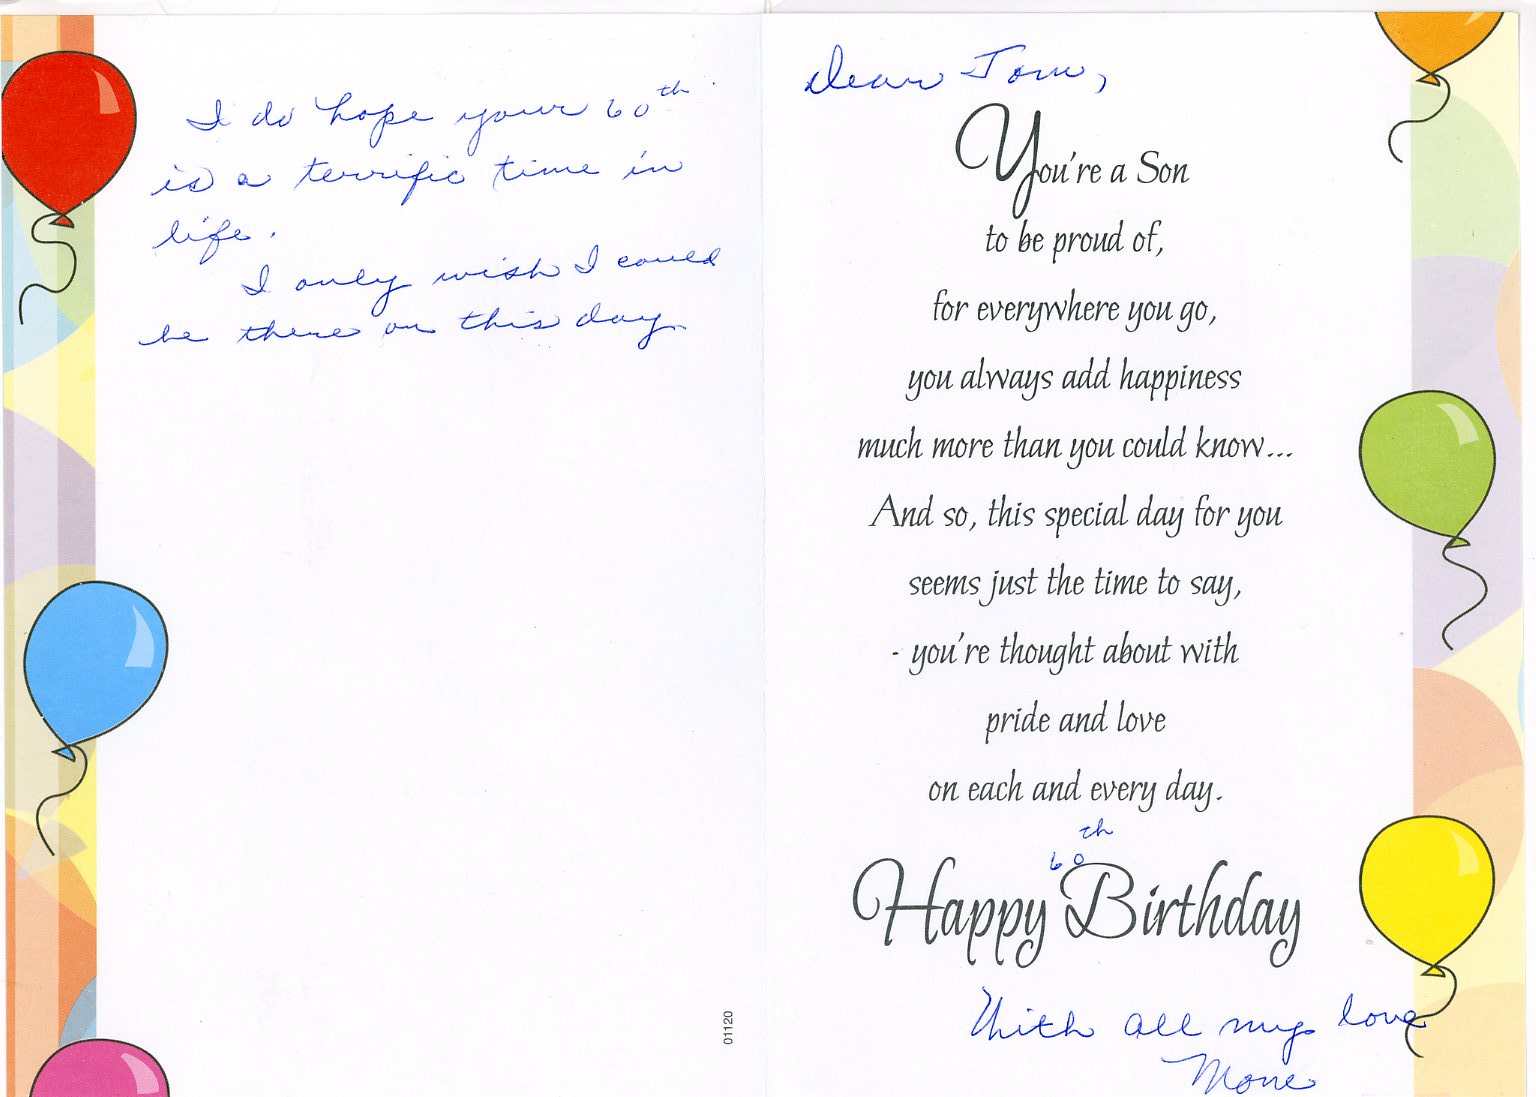 I do hope your 60th
is a terrific time in
life.
I only wish I could
be there on this day
01120
Dear Tom,
You're a Son
to be proud of,
for everywhere you go,
you always add happiness
much more than you could know...
And so, this special day for you
seems just the time to say,
- you're thought about with
pride and love
on each and every day.
60th
Happy Birthday
With all my love